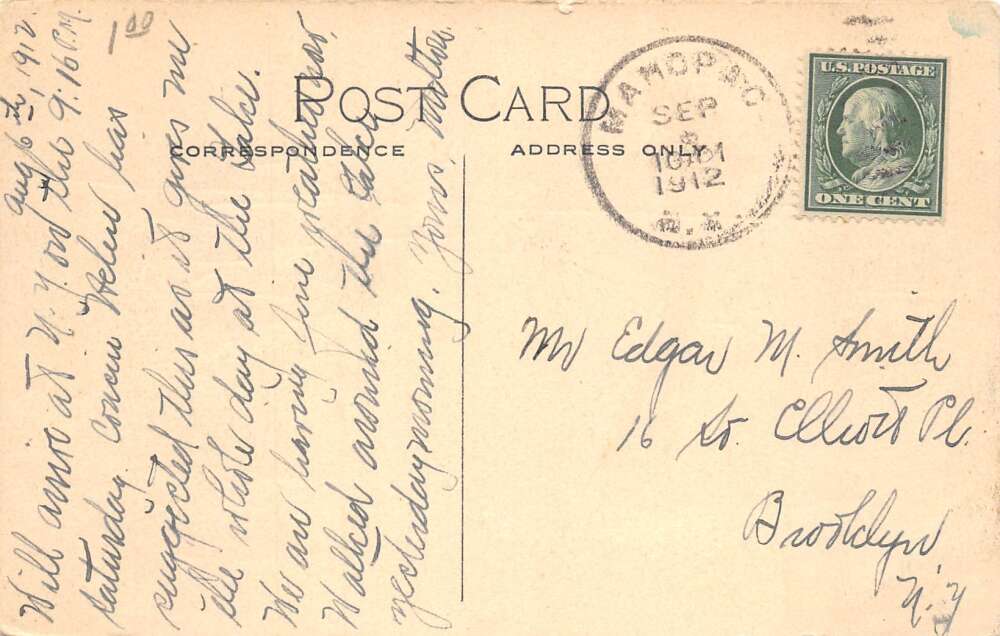 1.00
Aug 6th, 1912
Will arrive at N.Y. on the 9:16 P.M.
saturday. Cousin Helen has
suggested this as it gives me
the whole day at the Lake.
We are having fine weather now,
Walked around the Lake
yesterday morning. Yours, Milton
POST CARD
CORRESPONDENCE
ADDRESS ONLY
MAHOPAC
SEP
10 PM
1912
N.Y.
U.S. POSTAGE
ONE CENT
Mr Edgar M. Smith
16 So. Elliott Pl.
Brooklyn
N.Y